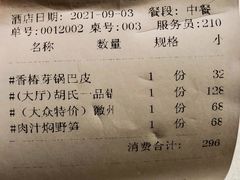 酒店日期: 2021-09-03 餐段: 中餐
单号:0012002 桌号:003 服务员:210
名称 数量 规格 小
#香椿芽锅巴皮 1 份 32
#(大厅)胡氏一品锅 1 份 128
#(大众特价)徽州 1 份 68
#肉汁焖野笋 1 份 68
消费合计: 296